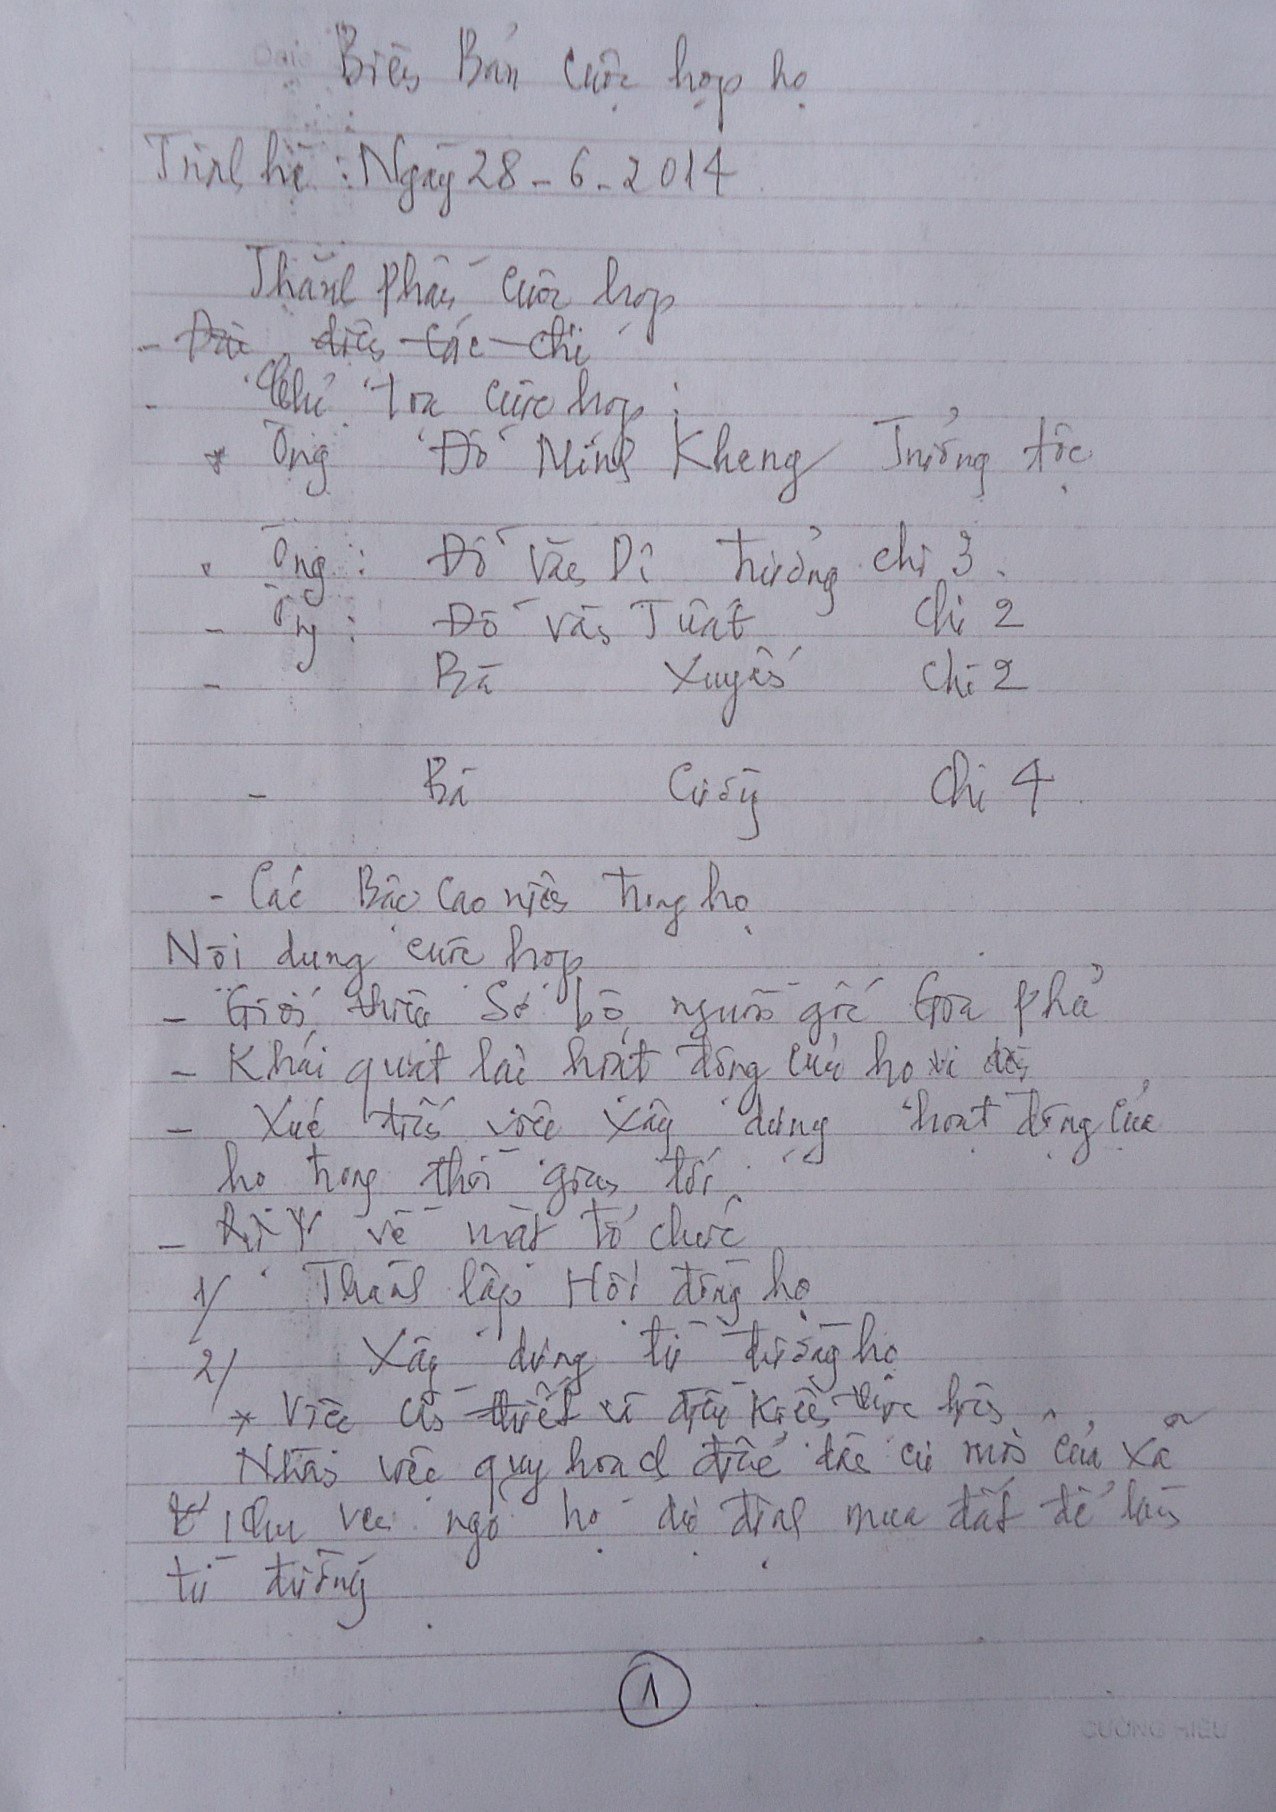 Biên Bản cuộc họp họ
Ngày 28-6-2014
Thành phần cuộc họp
- Đại diện các chi
- Chủ tọa cuộc họp:
* Ông Đỗ Minh Kheng Trưởng tộc
- Ông: Đỗ Văn Dì trưởng chi 3
- Ông: Đỗ Văn Tuất chi 2
- Bà Xuyến chi 2
- Bà chi 4
- Các Bậc Cao niên trong họ
Nội dung cuộc họp
- Giới thiệu Sơ bộ nguồn gốc Gia phả
- Khái quát lại hoạt động của họ
- Xúc tiến việc xây dựng hoạt động của
họ trong thời gian tới
- về mặt tổ chức
1/ Thành lập Hội đồng họ
2/ Xây dựng từ đường họ
* Việc cần thiết và điều kiện thực hiện
Nhân việc quy hoạch dân cư mới của xã
họ dự định mua đất để làm
từ đường
1
CƯỜNG HIỆU